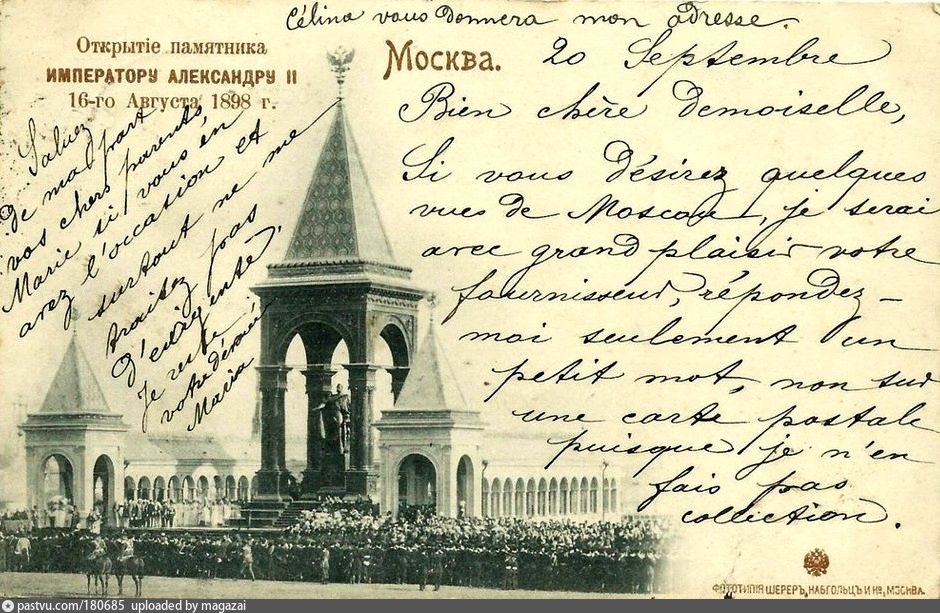 Célina vous donnera mon adresse.
Открытіе памятника
ИМПЕРАТОРУ АЛЕКСАНДРУ II
16-го Августа 1898 г.
Москва.
20 Septembre
Bien chère demoiselle,
Si vous désirez quelques
vues de Moscou, je serai
avec grand plaisir votre
fournisseur, répondez-
moi seulement d'un
petit mot, non sur
une carte postale
puisque je n'en
fais pas
collection.
Saluez
de ma part
vos chers parents,
Marie si vous en
avez l'occasion et
surtout ne me
traitez pas
d'
Je
votre
Maria
ФОТОТИПІЯ ШЕРЕРЪ, НАБГОЛЬЦЪ И Ко, МОСКВА.
pastvu.com/180685 uploaded by magazai